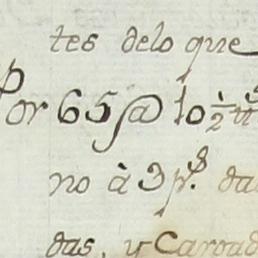 tes delo que
Por 65@ 10½ tt
no à 3 p.s da
das, y Cargad